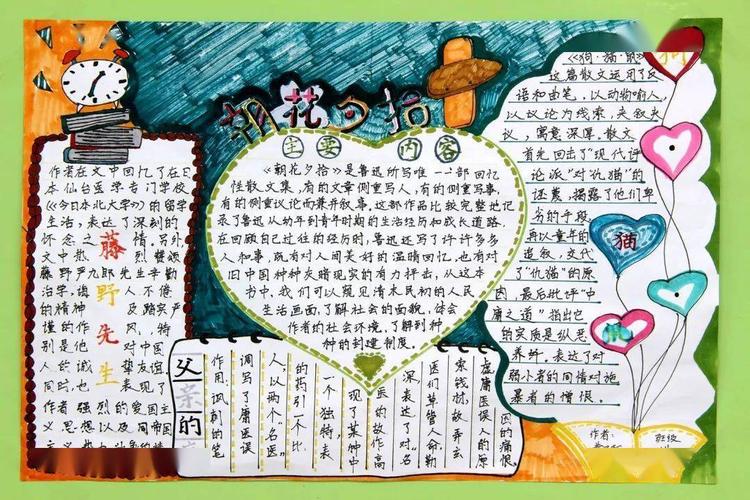 朝花夕拾
主要内容
《朝花夕拾》是鲁迅所写唯一一部回忆
性散文集,有的文章侧重写人,有的侧重写事,
有的侧重议论而兼开叙事。这部作品比较完整地记
录了鲁迅从幼年到青年时期的生活经历和成长道路.
在回顾自己过往的经历时,鲁迅还写了许许多多
人和事,既有对人间美好的温晴回忆,也有对
旧中国种种灰暗现实的有力抨击,从这本
书中,我们可以窥见清末民初的人民
生活画面,了解社会的面貌,体会
作者的社会环境,了解到种
种的封建制度.
作者在文中回忆了在日
本仙台医学专门学校
《今日本北大学》的留学
生活,表达了深刻的
怀念之情,另外
文中散 赞颂
藤野严九郎先生辛勤
治学,诲人不倦
的精神 及踏实严
谨的作风,特
别是他对中国
人的诚挚友谊,
同时,也表现了
作者强烈的爱国主
义思想以及同帝国
藤野先生
《狗·猫·鼠》
这篇散文运用了反
语和曲笔,以动物喻人,
以议论为线索,夹叙夹
议,寓意深厚,散文
首先回击了"现代评
论派"对"仇猫"的
诬蔑,揭露了他们卑
劣的手段,
再以童年的
追叙,交代
了"仇猫"的原
因,最后批评"中
庸之道"指出它
的实质是纵恶
养奸,表达了对
弱小者的同情对施
暴者的憎恨.
狗
猫
父亲的
作用,讽刺的笔
调写了庸医误
人,以两个"名医"
的药引一个比
一个独特,表
现了某种中
医的故作高
深表达了对"名
医们草菅人命,勒
索钱财,故弄玄
虚庸医误人的原
因的痛恨.
作者:
班级